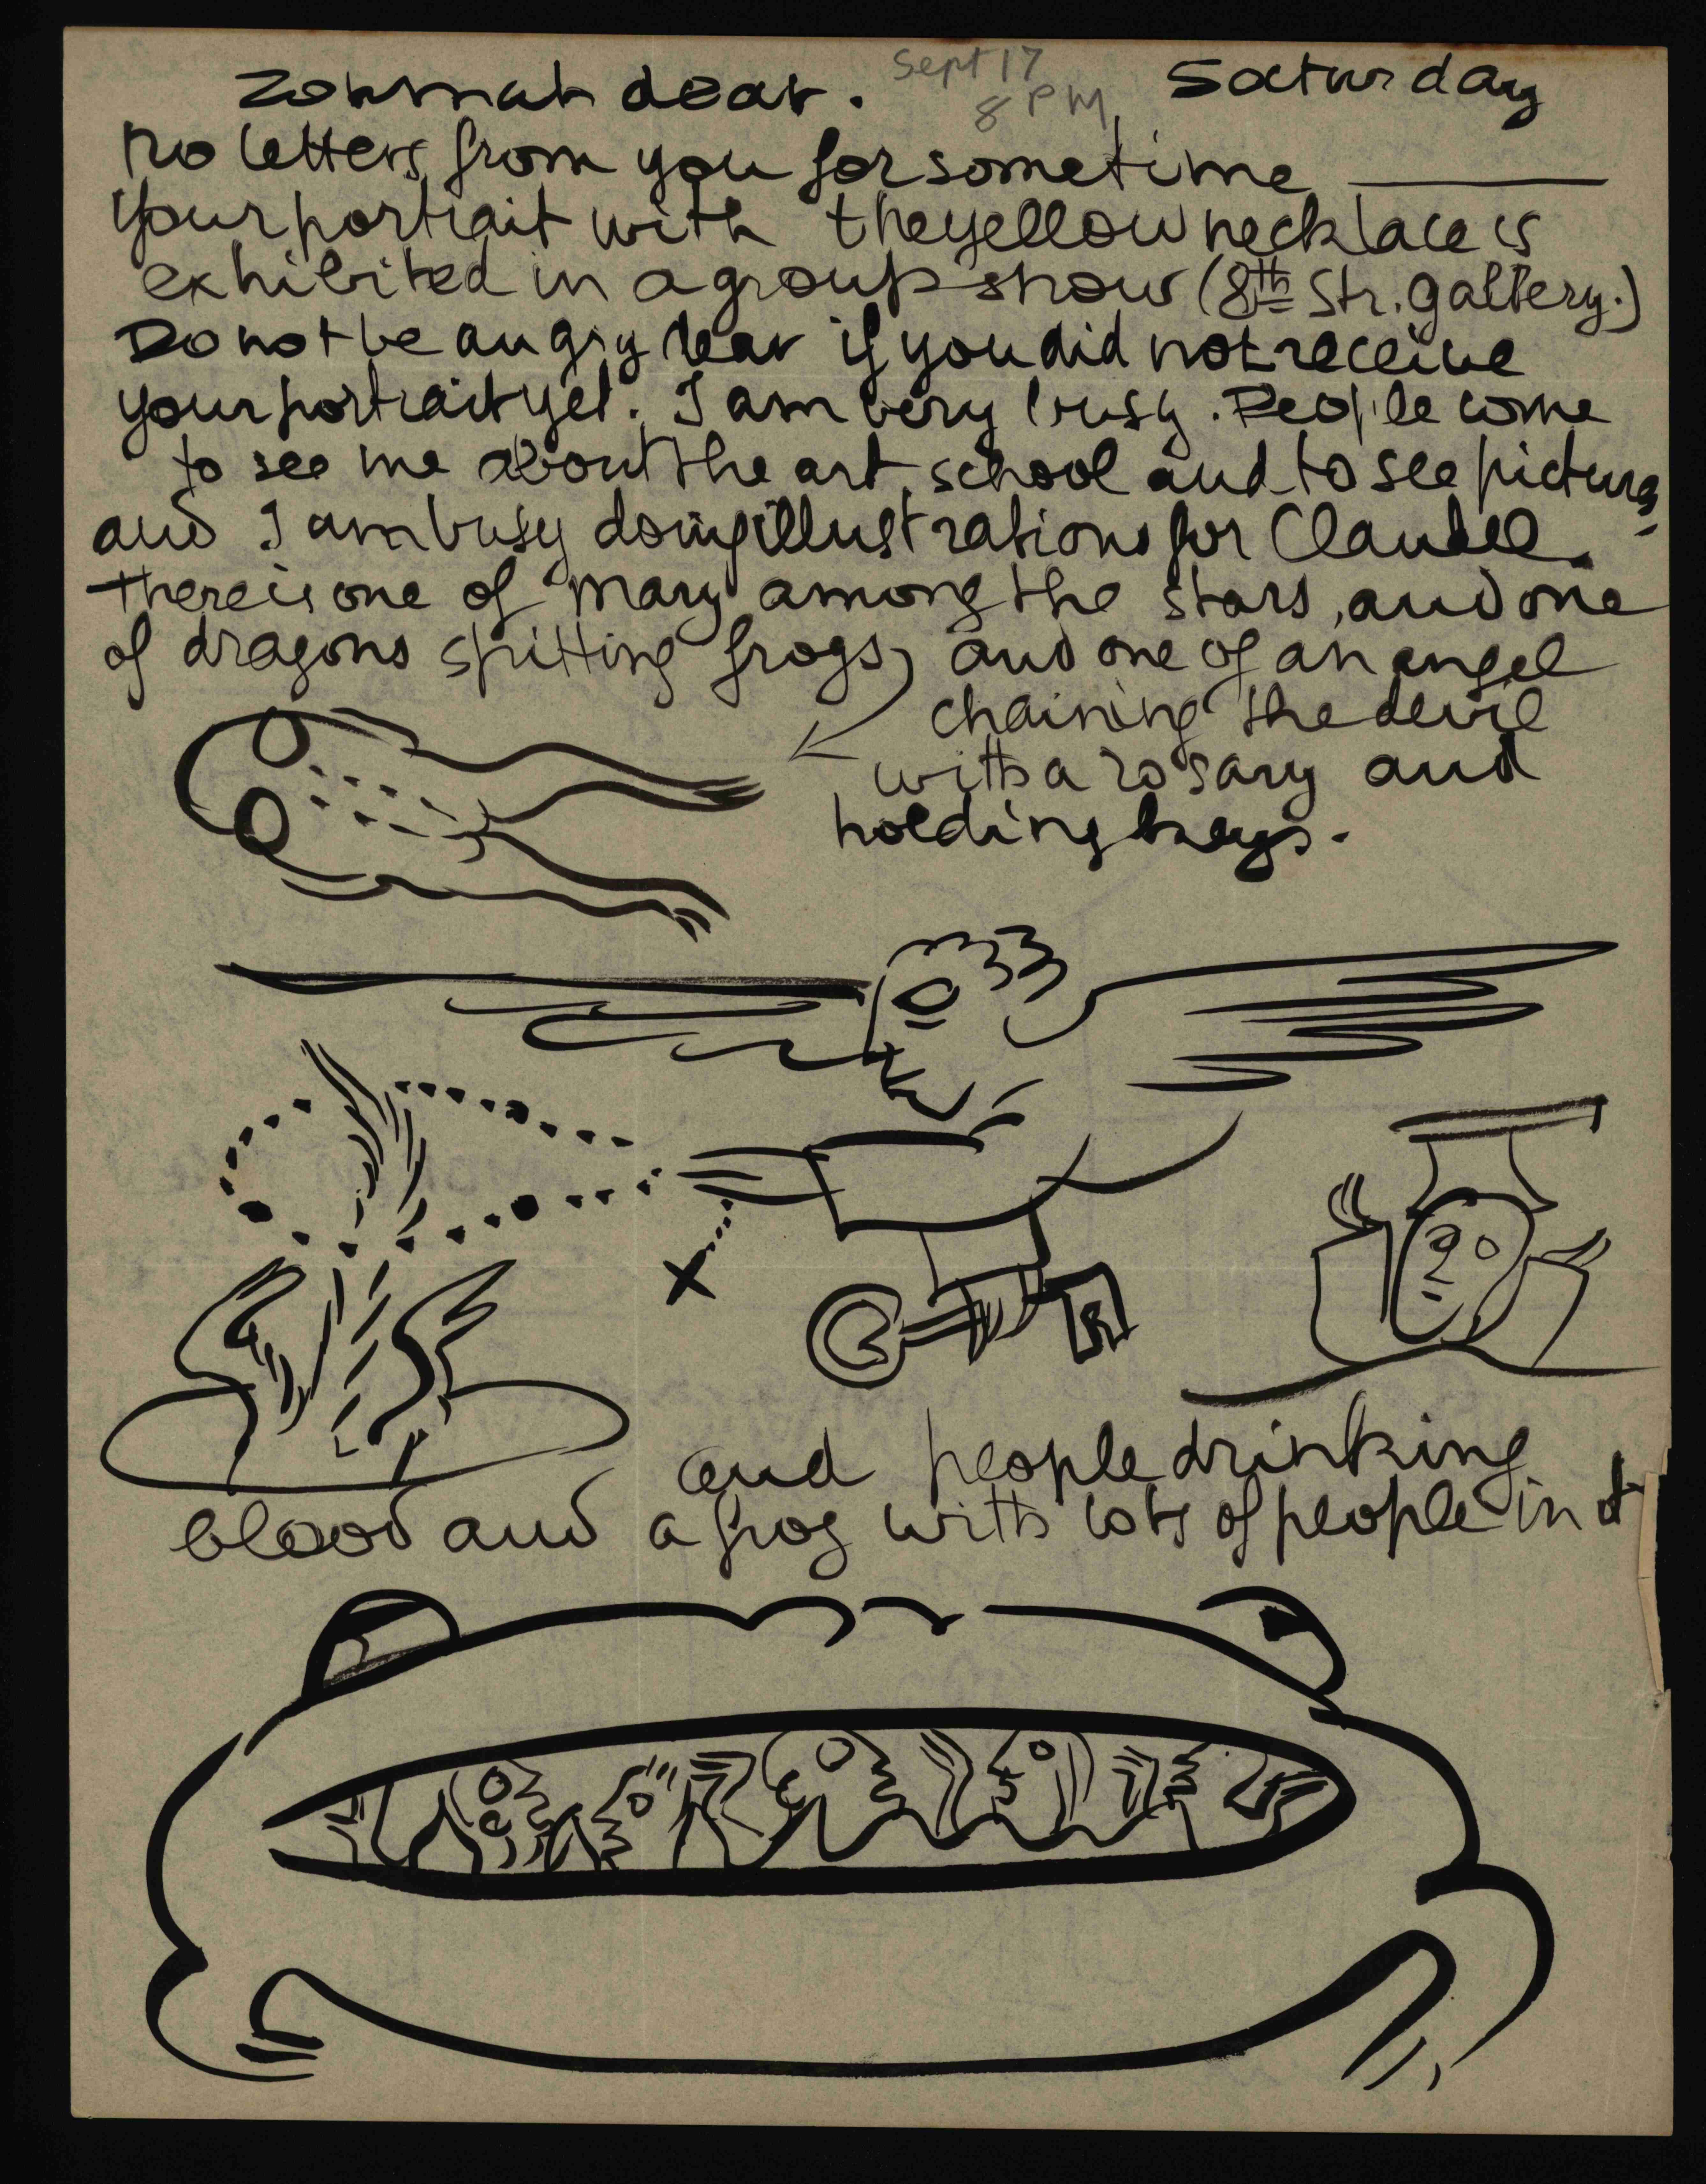 Zohmah dear. Sept 17 8 PM Saturday
no letters from you for sometime ———
your portrait with the yellow necklace is
exhibited in a group show (8th Str. gallery.)
Do not be angry dear if you did not receive
your portrait yet. I am very busy. People come
to see me about the art school and to see pictures
and I am busy doing illustrations for Claudel.
there is one of Mary among the stars, and one
of dragons spitting frogs, and one of an angel
chaining the devil
with a rosary and
holding keys.
and people drinking
blood and a frog with lots of people in it